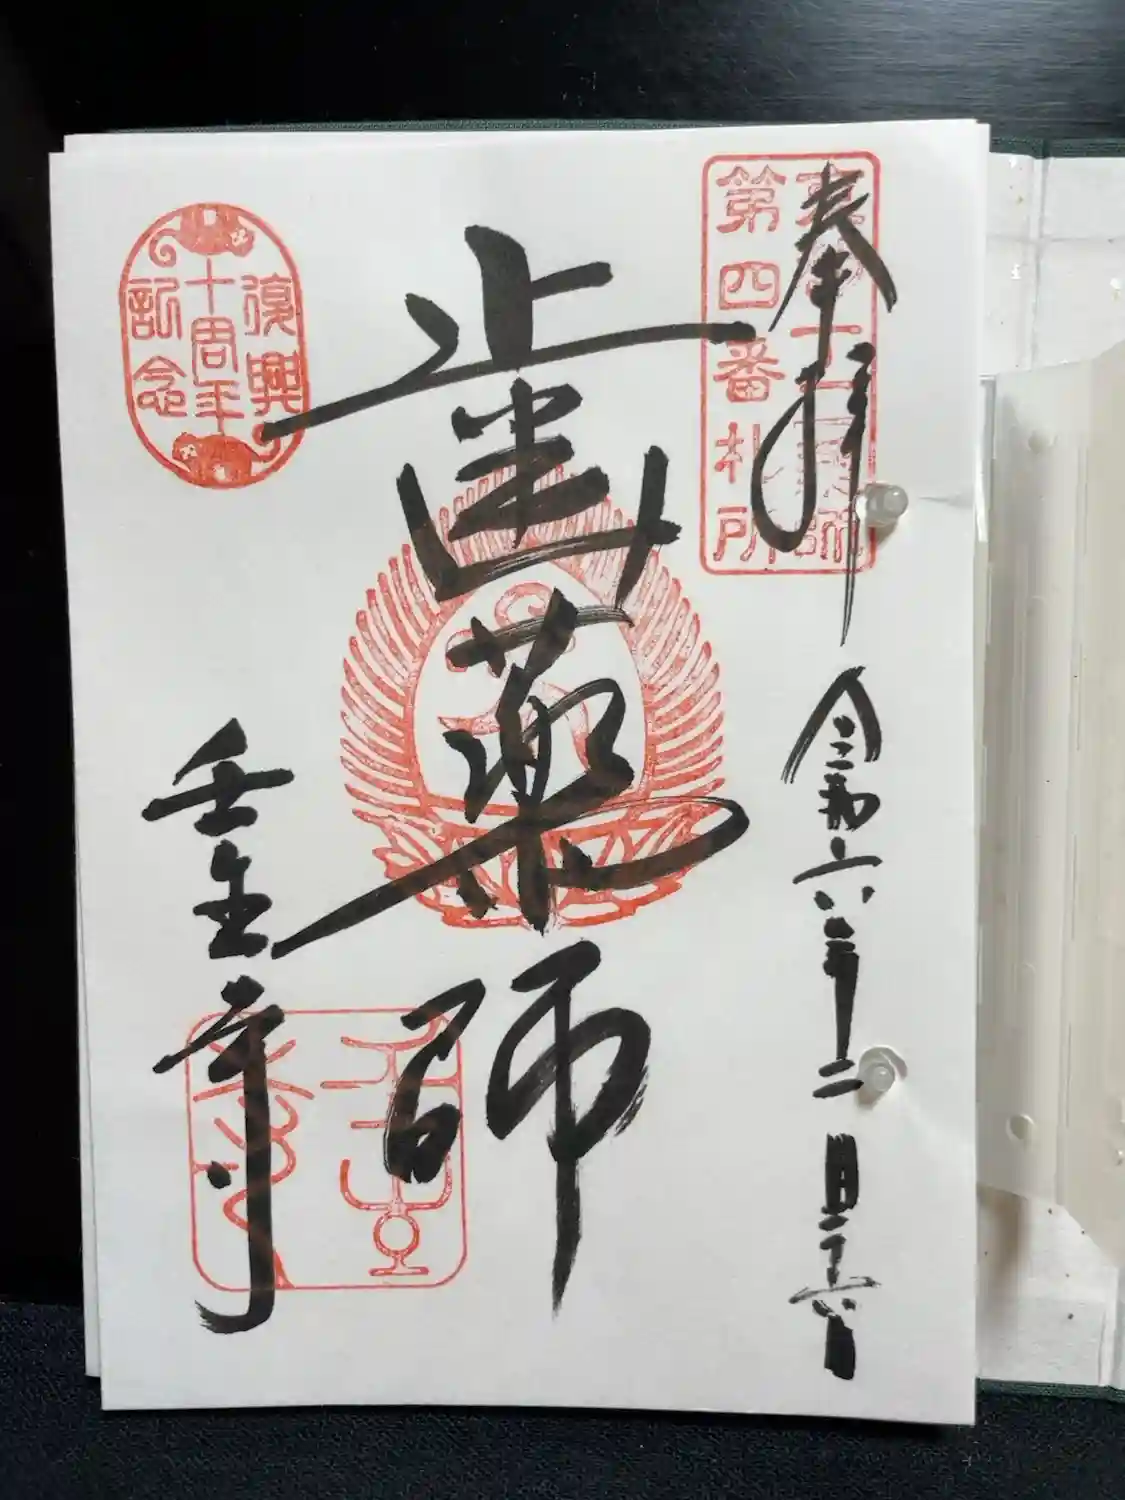 奉拝
令和六年二月二十六日
第四番札所
歯薬師
復興
十周年
記念
壬生寺